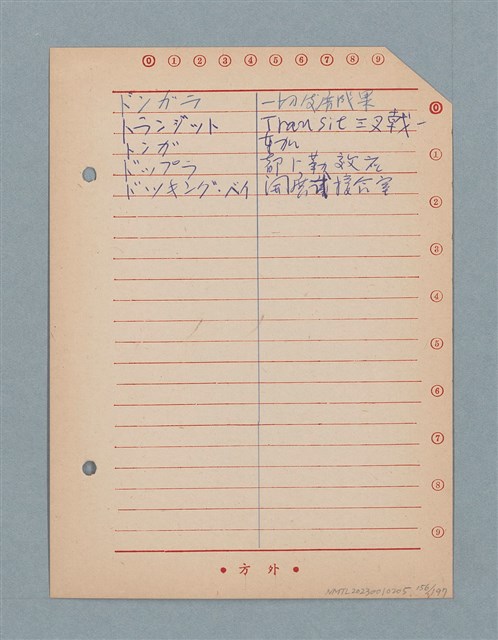 0 1 2 3 4 5 6 7 8 9
ドンガラ 一切皆成果
トランジット Transit 三叉戟一
トンガ 東加
ドップラ 都卜勒效应
ドッキング・ベイ 接合室
0
1
2
3
4
5
6
7
8
9
• 方外 •
NMTL20230010205, 156/197